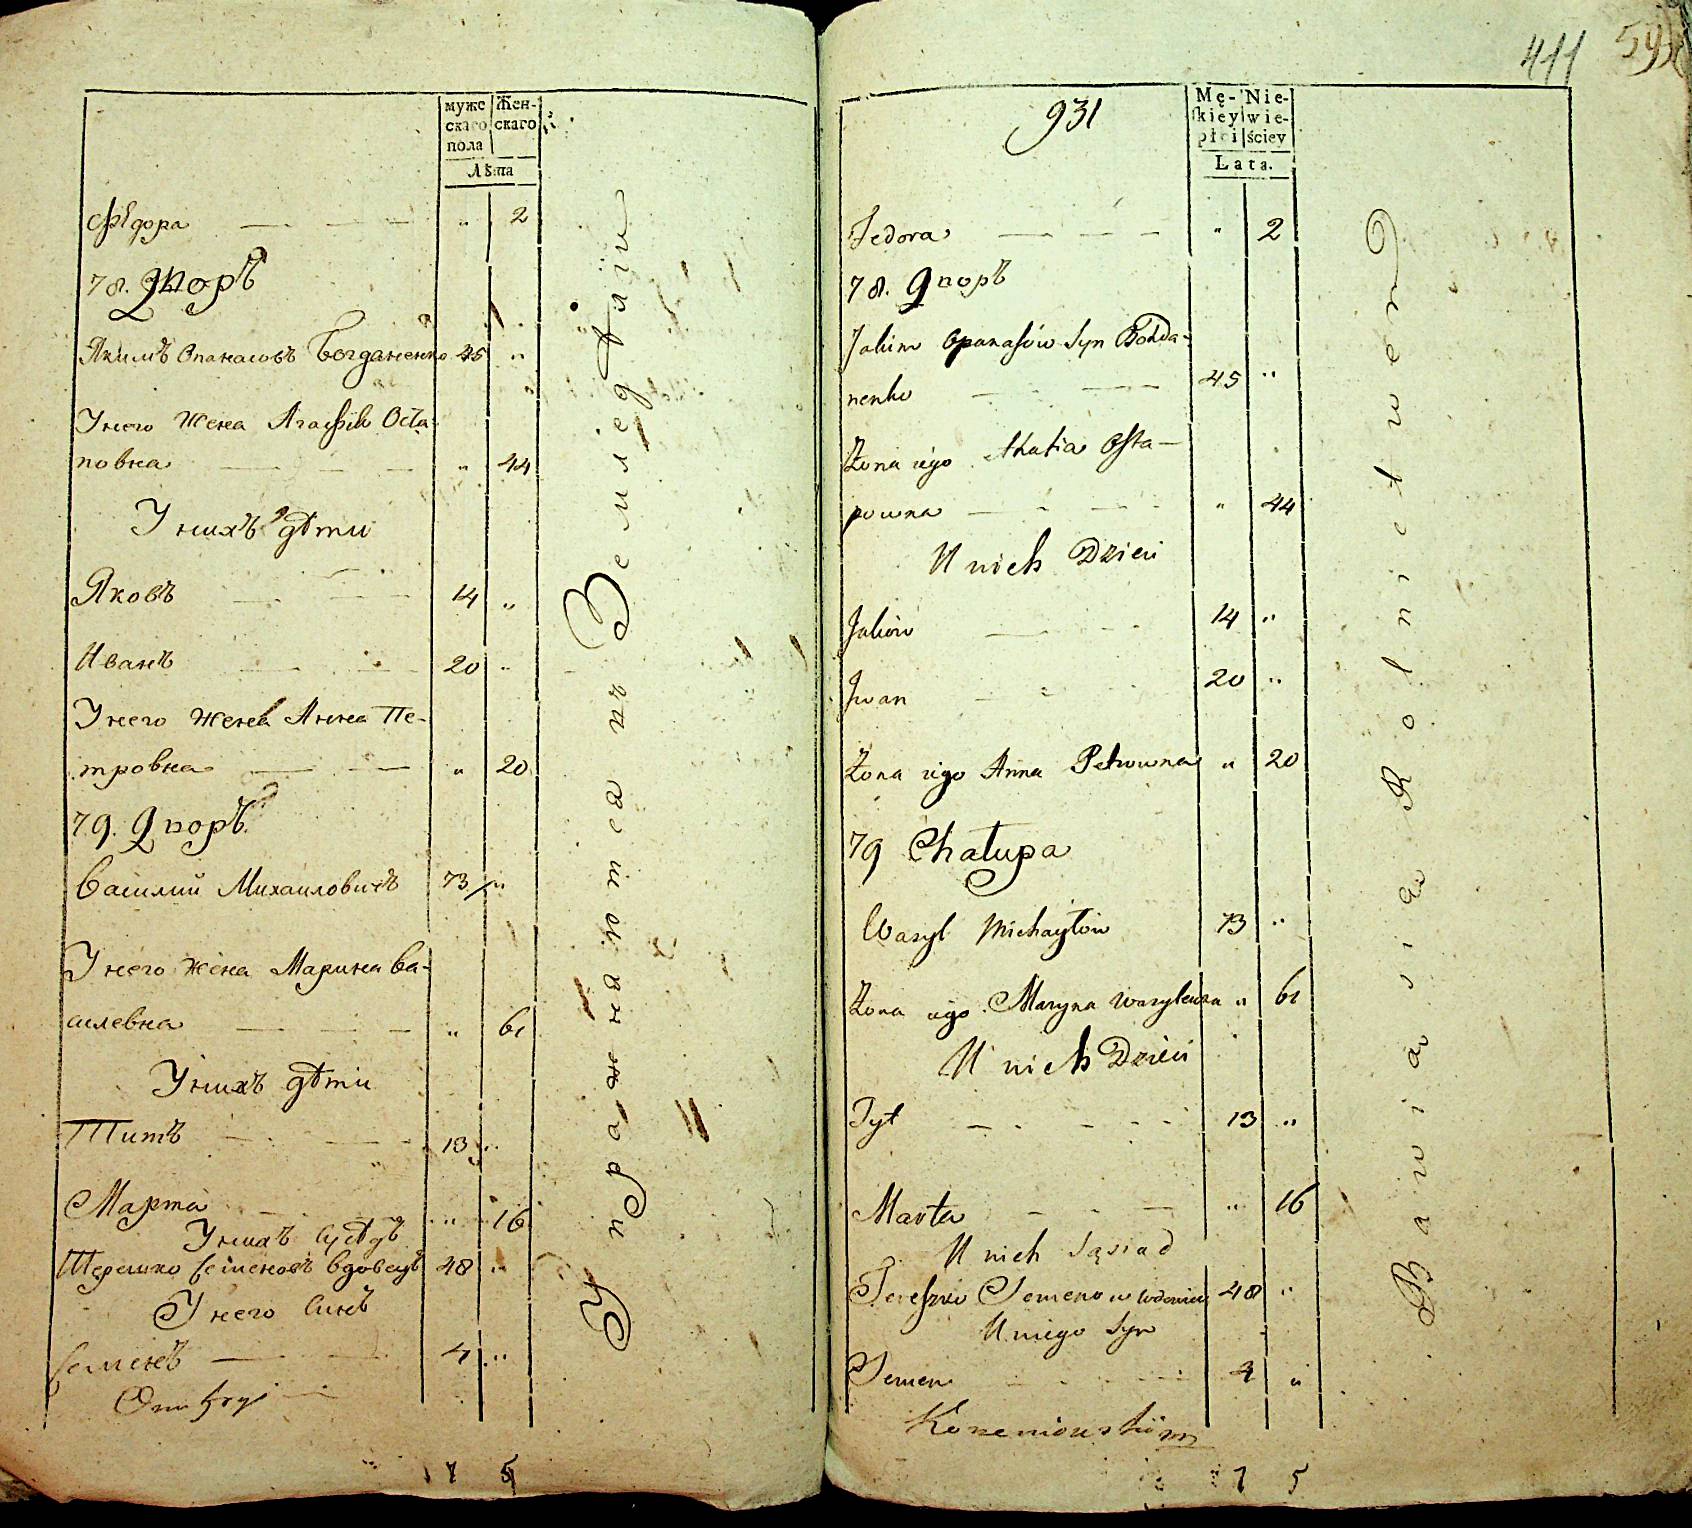 муже
скаго
пола
Жен-
скаго
Лѣта
Фѣдора — — — „ 2
78. Дворъ
Якимъ Опанасовъ Богданенко 45 „
У него жена Агафія Оста-
повна — — — „ 44
У нихъ дѣти
Яковъ — — — 14 „
Иванъ — — — 20 „
У него жена Анна Пе-
тровна — — „ 20
79. Дворъ
Василий Михаиловичъ 73 „
У него жена Марина Ва-
силевна — — — „ 61
У нихъ дѣти
Титъ — — 13 „
Марта — — „ 16
У нихъ Сусѣдъ
Терешко Семеновъ вдовецъ 48 „
У него Синъ
Семенъ — — 4 „
7 5
Упражняются въ Земледѣліи
411
931
Mę-
skiey
płci
Nie-
wie-
ściey
Lata.
Fedora — — — „ 2
78. Дворъ
Jakim Opanasów Syn Bohda-
nenko — — 45 „
Żona iego Ahafia Osta—
powna — — — „ 44
U nich Dzieci
Jakow — — 14 „
Jwan — — 20 „
Żona iego Anna Petrowna „ 20
79 Chałupa
Wasyl Michayłow 73 „
Żona iego Maryna Wasylewna „ 61
U nich Dzieci
Tyt — — — 13 „
Marta — — — „ 16
U nich Sąsiad
Tereszko Semenow wdowiec 48 „
U niego Syn
Semen — — 4 „
7 5
Bawią się Rolnictwem